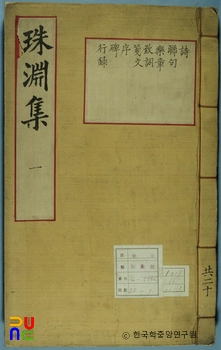 珠淵集
一
詩
聯句
樂章
致詞
箋文
序
碑
行錄
共二十
© 한국학중앙연구원